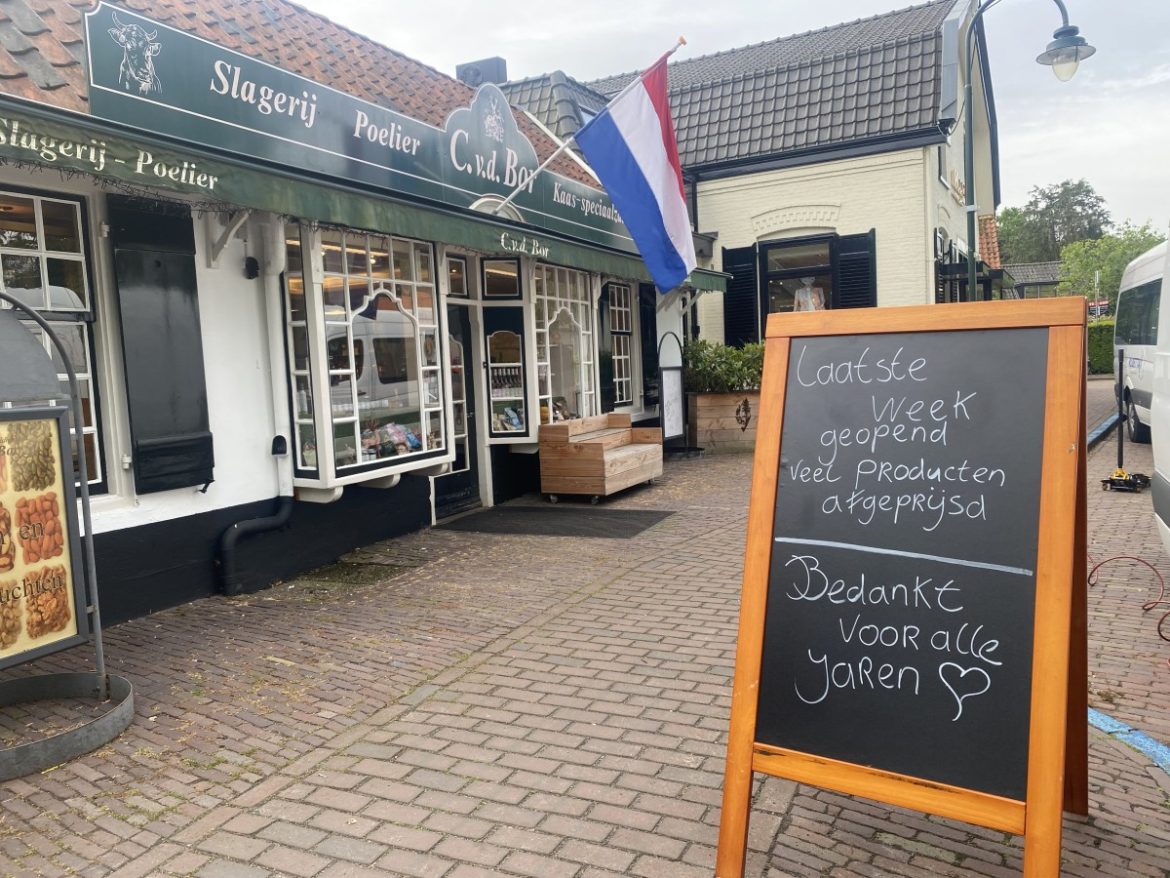 Slagerij Poelier C.v.d. Bor
Slagerij - Poelier
C.v.d. Bor
en
Laatste
Week
geopend
veel Producten
afgeprijsd
Bedankt
voor alle
Jaren ♡